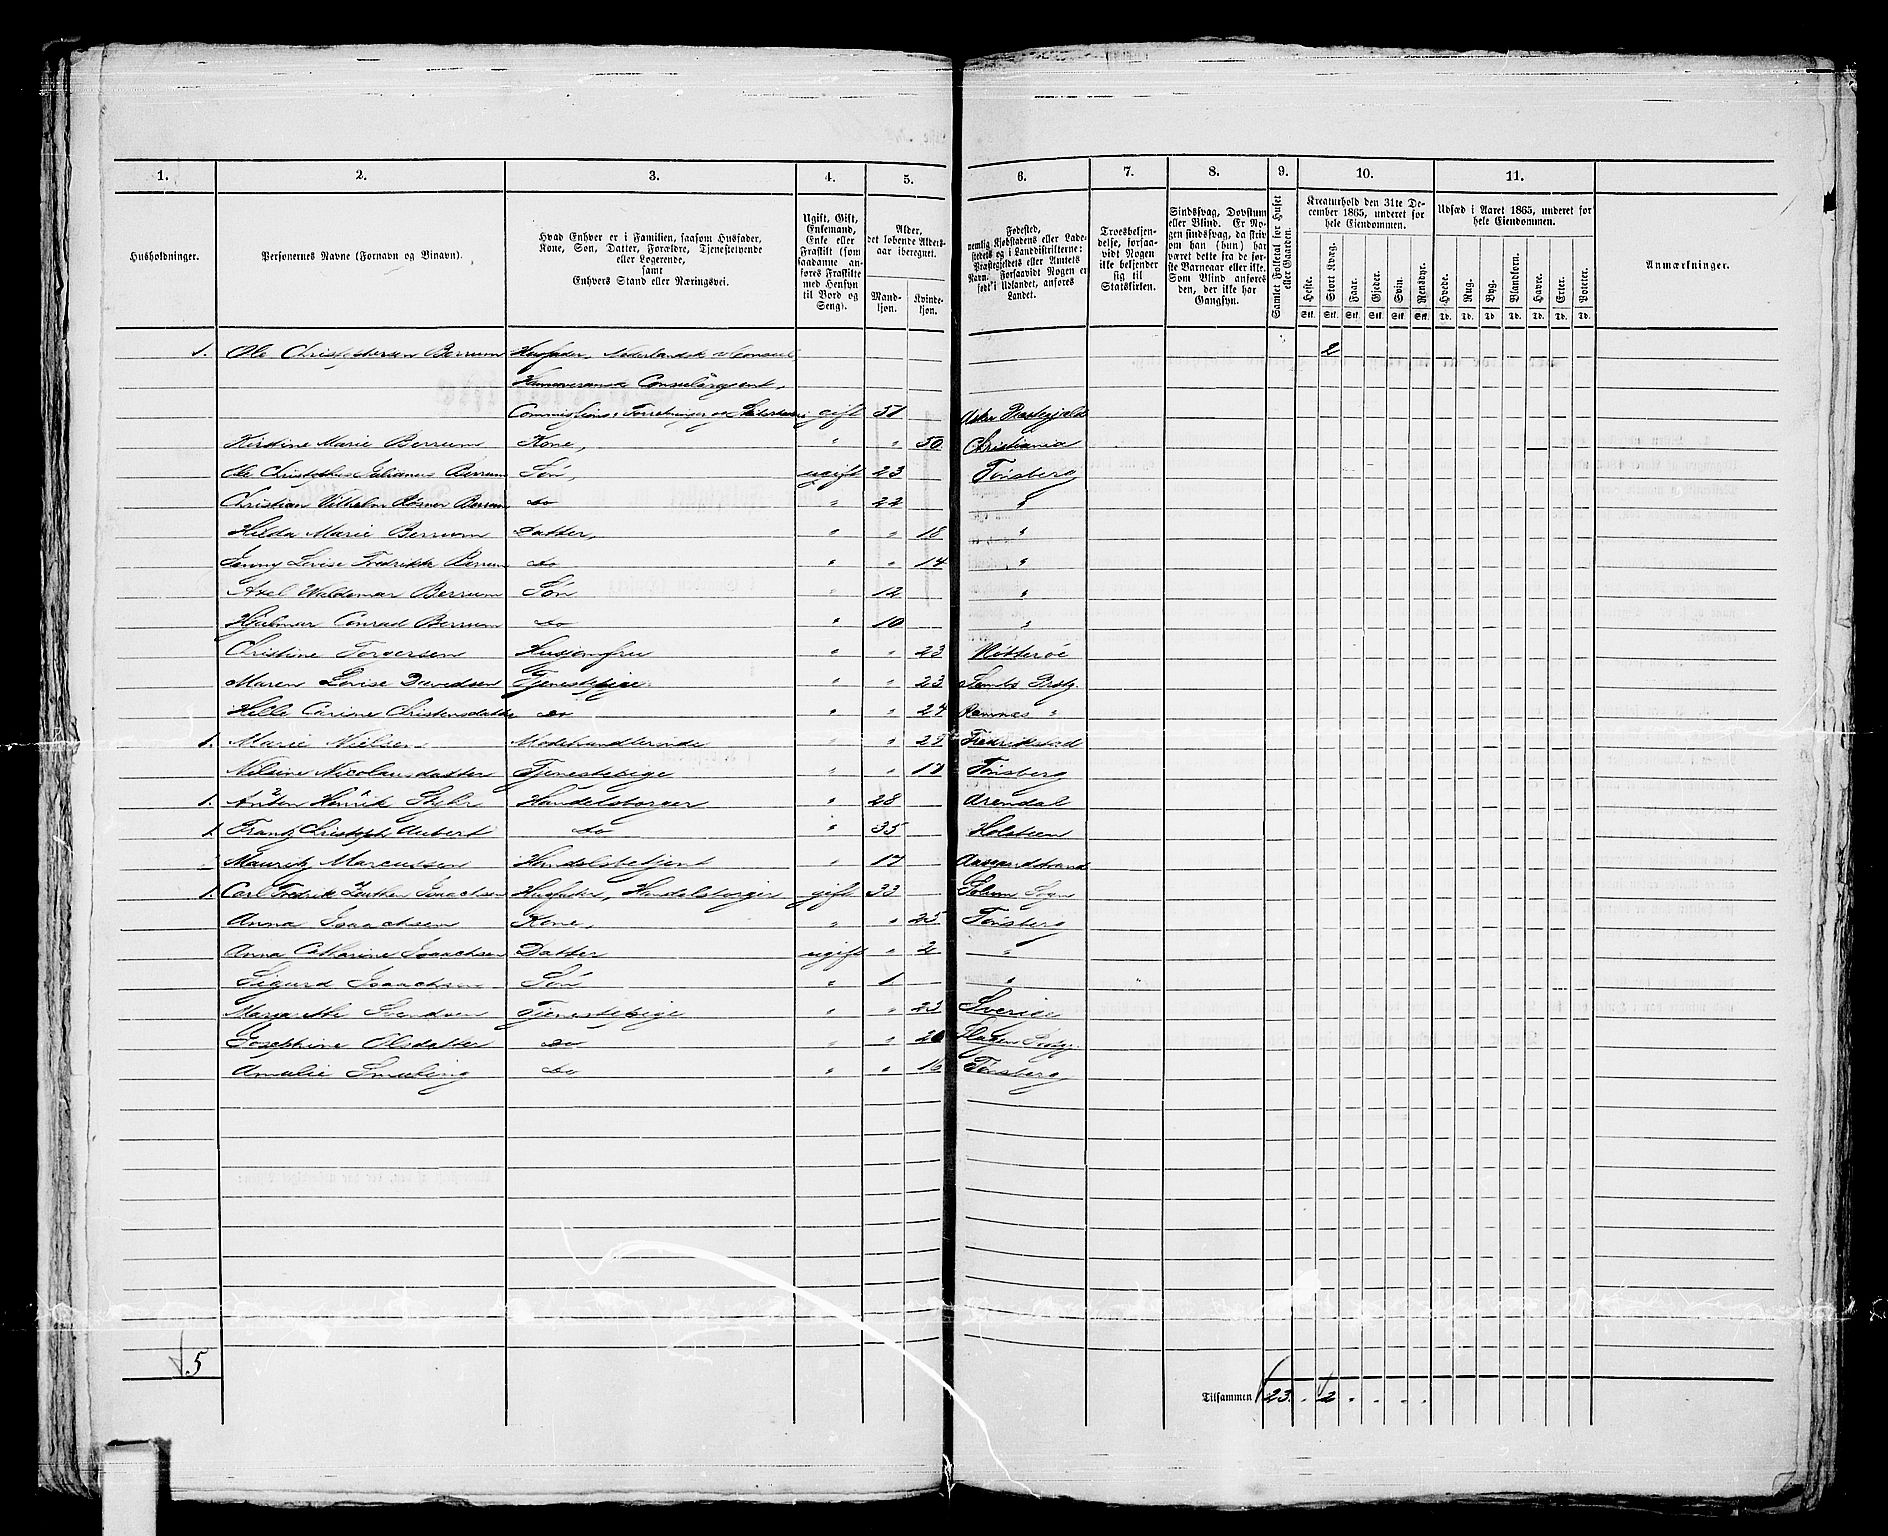 1. 2. 3. 4. 5. 6. 7. 8. 9. 10. 11.
Husholdninger.
Personernes Navne (Fornavn og Tilnavn).
Hvad Enhver er i Familien, saasom Husfader,
Kone, Søn, Datter, Forældre, Tjenestetyende
eller Logerende,
samt
Enhvers Stand eller Næringsvei.
Ugift, Gift,
Enkemand,
Enke eller
Fraskilt (som
saadanne an-
føres Fraskilte
med Hensyn
til Bord og
Seng).
Alder,
det løbende Alders-
aar iberegnet.
Mand-
kjøn.
Kvinde-
kjøn.
Fødested,
nemlig Kjøbstadens eller Lade-
stedets og i Landdistrikterne:
Præstegjeldets eller Amtets
Navn. Forsaavidt Nogen er
født i Udlandet, anføres
Landet.
Troesbekjen-
delse, forsaa-
vidt Nogen
ikke bekjender
sig til
Statskirken.
Sindssvag, Døvstum
eller Blind. Er No-
gen sindssvag, da skriv
om han (hun) har
været dette fra de før-
ste Barneaar eller ikke.
Som Blind anføres
den, der ikke har
Gangsyn.
Samlet Folketal for Huset
eller Gaarden.
Kreaturhold den 31te De-
cember 1865, underet for
hele Eiendommen.
Heste. Stort Kvæg. Faar. Gjeder. Svin. Rensdyr.
Stk. Stk. Stk. Stk. Stk. Stk.
Udsæd i Aaret 1865, underet for
hele Eiendommen.
Hvede. Rug. Byg. Blandkorn. Havre. Erter. Poteter.
Td. Td. Td. Td. Td. Td. Td.
Anmærkninger.
1. Ole Christophersen Berrum Husfader, Nederlandsk Viceconsul 2
Hannoveransk Consularagent,
Commissions Forretninger og gift 51 Asker Præstegjeld
Kirstine Marie Berrum Kone, " " 50 Christiania
Ole Christophus Berrum Søn, ugift 23 Tønsberg
Christian Vilhelm Berrum do " 22 "
Hilda Marie Berrum Datter, " " 18 "
Jenny Lovise Fredrikke Berrum do " " 14 "
Axel Waldemar Berrum Søn " 12 "
Hjalmar Conrad Berrum do " 10 "
Christine Torgersen Husjomfru " " 23 Nøtterøe
Maren Lovise Davidsen Tjenestepige " " 23 Sems Prstg.
Helle Carine Christensdatter do " " 24 Ramnæs "
1. Marie Nielsen Modehandlerinde " " Fredrikstad
Nilsine Nicolausdatter Tjenestepige " " Tønsberg
1. Anton Henrik Handelsborger " 28 Arendal
1. Frantz Christoph Aubert do " 35 Holsteen
Mauritz Marcussen Handelsbetjent " 17 Aasgaardstrand
1. Carl Fredrik Isaachsen Husfader, Handelsborger gift 33 Solum Sogn
Anna Isaachsen Kone, " " 25 Tønsberg
Anna Cathrine Isaachsen Datter ugift " 2 "
Sigurd Isaachsen Søn " 1 "
Margrethe Svendsen Tjenestepige " " 23 Sverige
Josephine Olsdatter do " " 20 Slagen Prstg.
Amalie Smuking do " " 16 Tønsberg
5
Tilsammen 23. " 2 " " " "